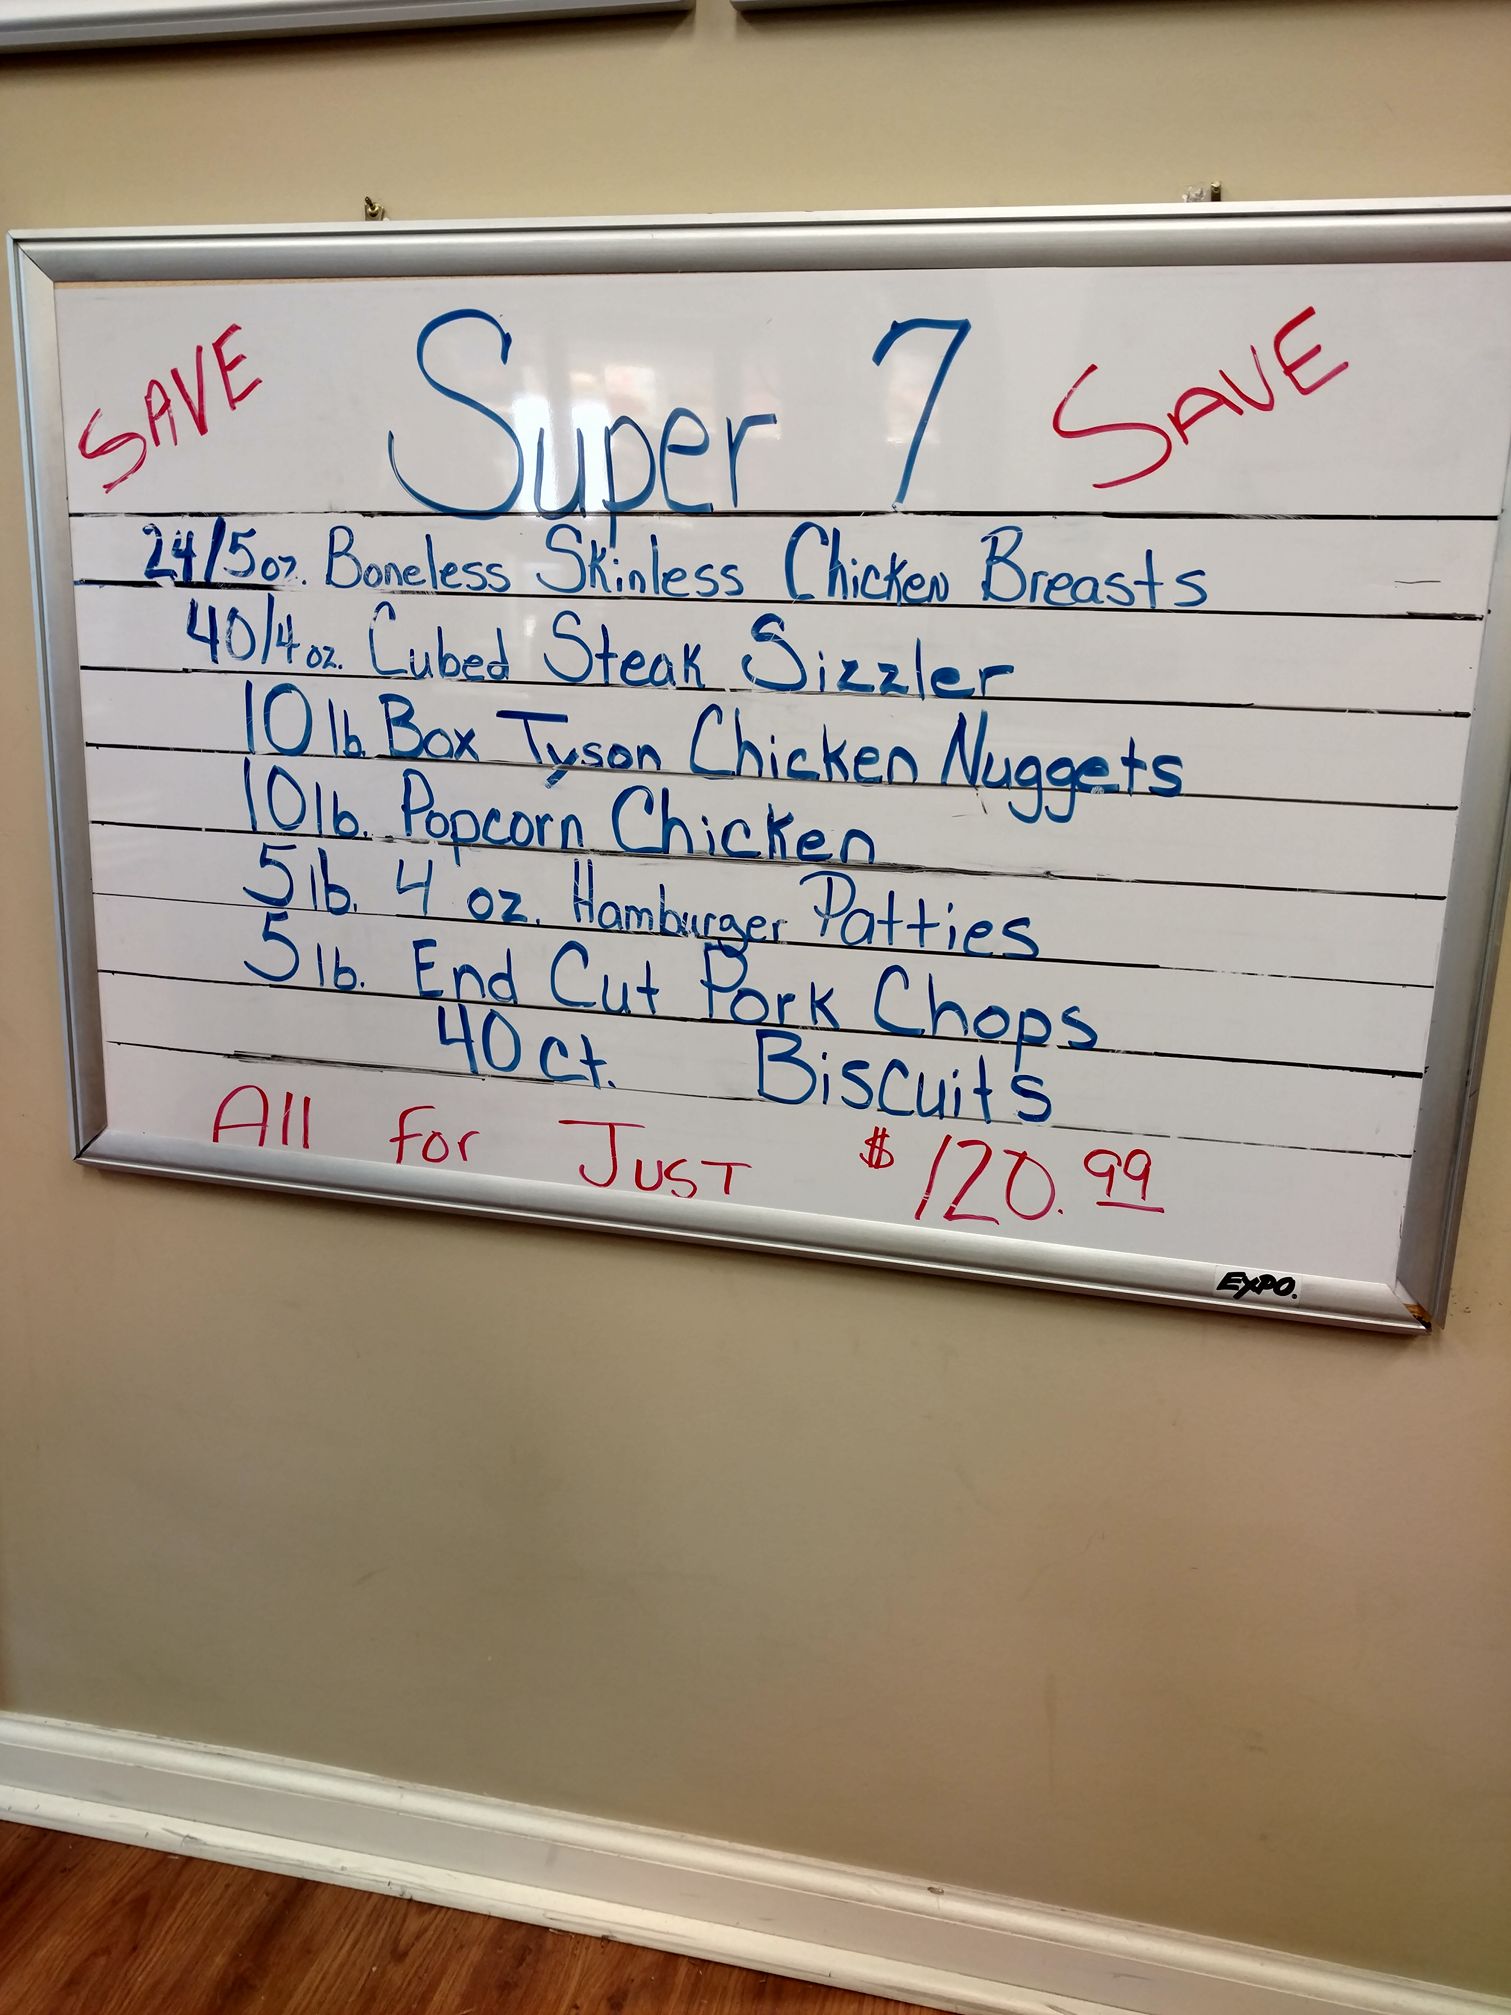 SAVE Super 7 SAVE
24/5oz. Boneless Skinless Chicken Breasts
40/4oz. Cubed Steak Sizzler
10 lb. Box Tyson Chicken Nuggets
10 lb. Popcorn Chicken
5 lb. 4 oz. Hamburger Patties
5 lb. End Cut Pork Chops
40 ct. Biscuits
All for JUST $120.99
EXPO.